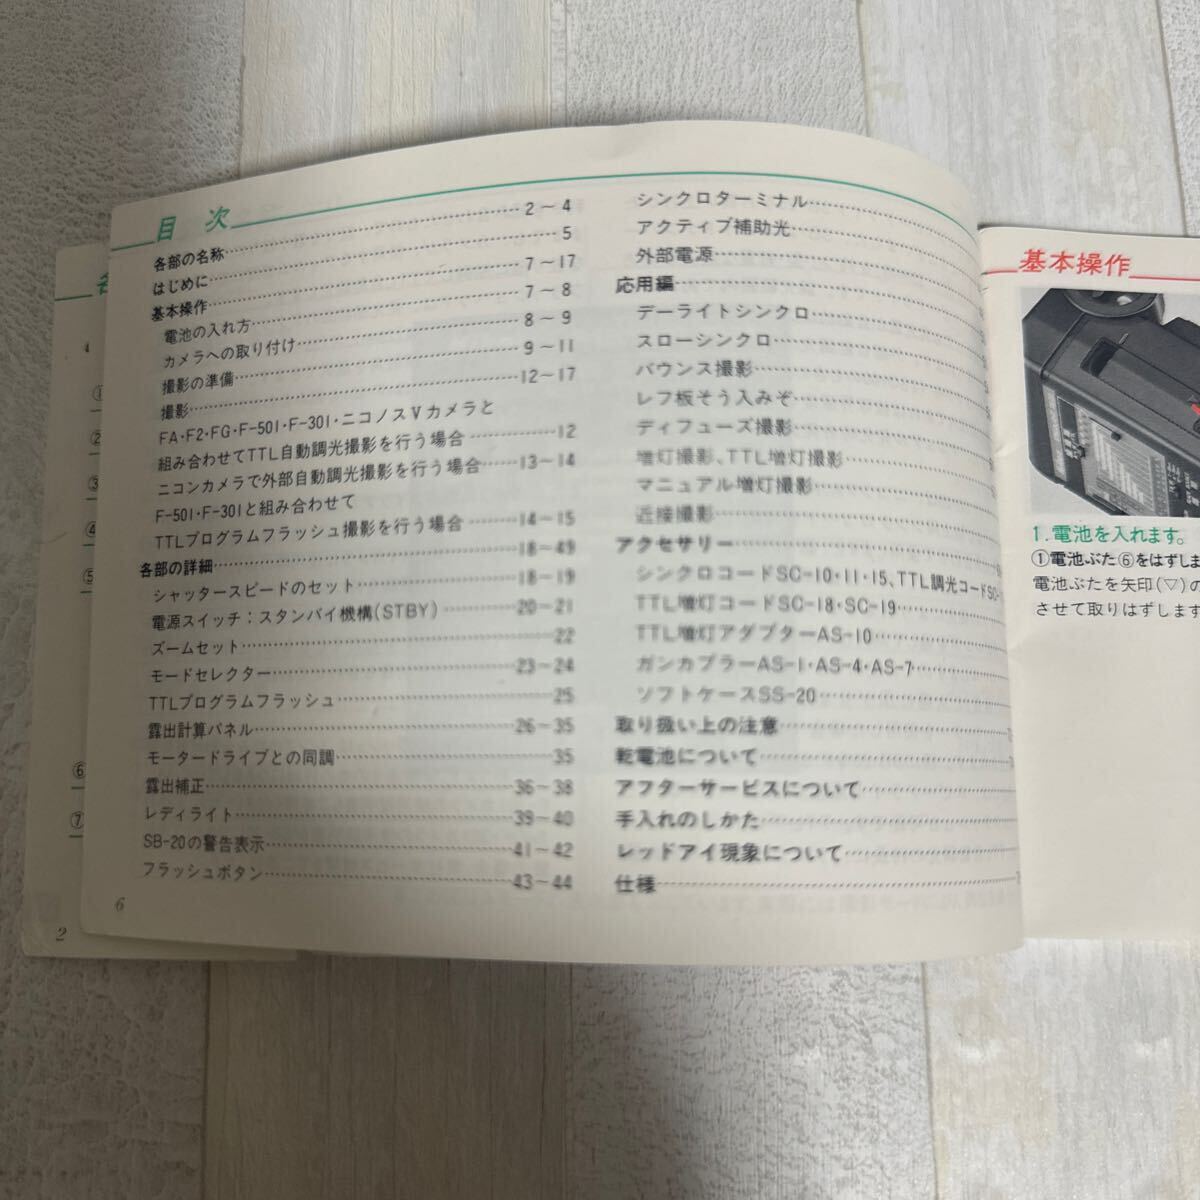 目 次
各部の名称 2～4
はじめに 5
基本操作 7～17
電池の入れ方 7～8
カメラへの取り付け 8～9
撮影の準備 9～11
撮影 12～17
FA・F2・FG・F-501・F-301・ニコノスVカメラと
組み合わせてTTL自動調光撮影を行う場合 12
ニコンカメラで外部自動調光撮影を行う場合 13～14
F-501・F-301と組み合わせて
TTLプログラムフラッシュ撮影を行う場合 14～15
各部の詳細 18～49
シャッタースピードのセット 18～19
電源スイッチ：スタンバイ機構(STBY) 20～21
ズームセット 22
モードセレクター 23～24
TTLプログラムフラッシュ 25
露出計算パネル 26～35
モータードライブとの同調 35
露出補正 36～38
レディライト 39～40
SB-20の警告表示 41～42
フラッシュボタン 43～44
6
シンクロターミナル
アクティブ補助光
外部電源
応用編
デーライトシンクロ
スローシンクロ
バウンス撮影
レフ板そう入みぞ
ディフューズ撮影
増灯撮影、TTL増灯撮影
マニュアル増灯撮影
近接撮影
アクセサリー
シンクロコードSC-10・11・15、TTL調光コードSC-
TTL増灯コードSC-18・SC-19
TTL増灯アダプターAS-10
ガンカプラーAS-1・AS-4・AS-7
ソフトケースSS-20
取り扱い上の注意
乾電池について
アフターサービスについて
手入れのしかた
レッドアイ現象について
仕様
基本操作
1.電池を入れます。
①電池ぶた⑥をはずしま
電池ぶたを矢印(▽)の
させて取りはずします
①
②
③
④
⑤
⑥
⑦
2